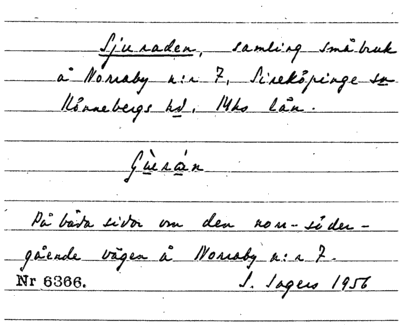 Sjuraden, samling småbruk
å Norraby n:r 7, Sireköpinge sn
Rönnebergs hd, Mhs län.
På båda sidor om den norr-söder-
gående vägen å Norraby n:r 7.
Nr 6366. S. Ingers 1956